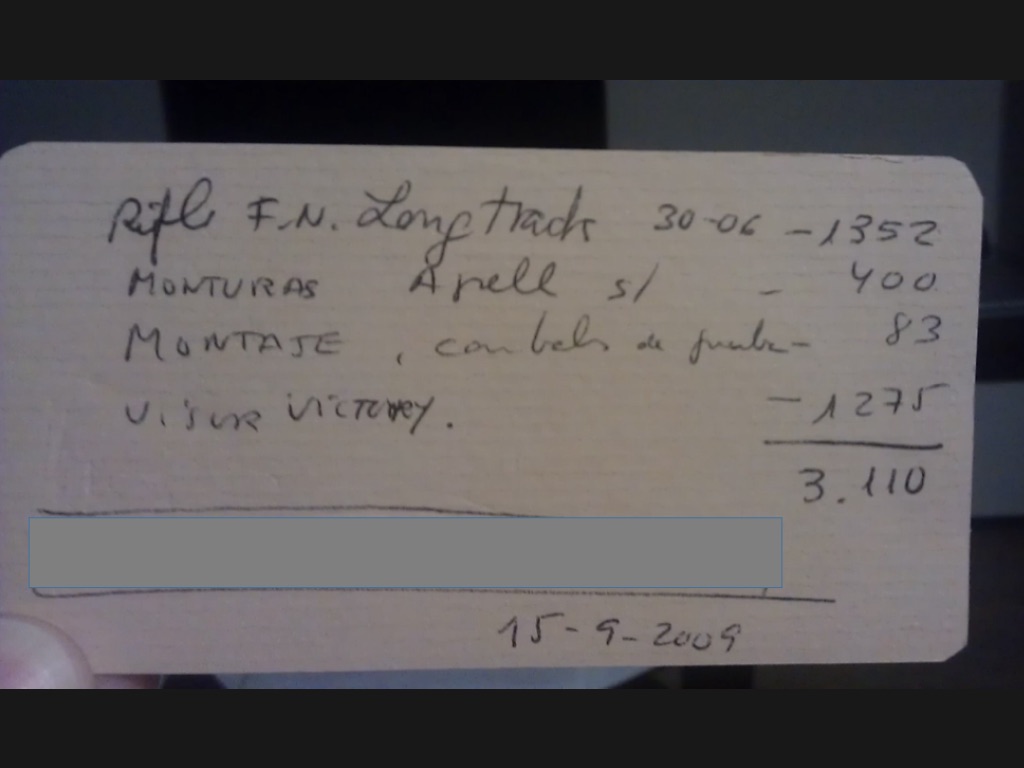 Rifle F.N. Longtrack 30-06 - 1352
MONTURAS Apell s/ - 400
MONTAJE, con balas de prueba - 83
VISOR VICTORY. - 1275
3.110
15-9-2009